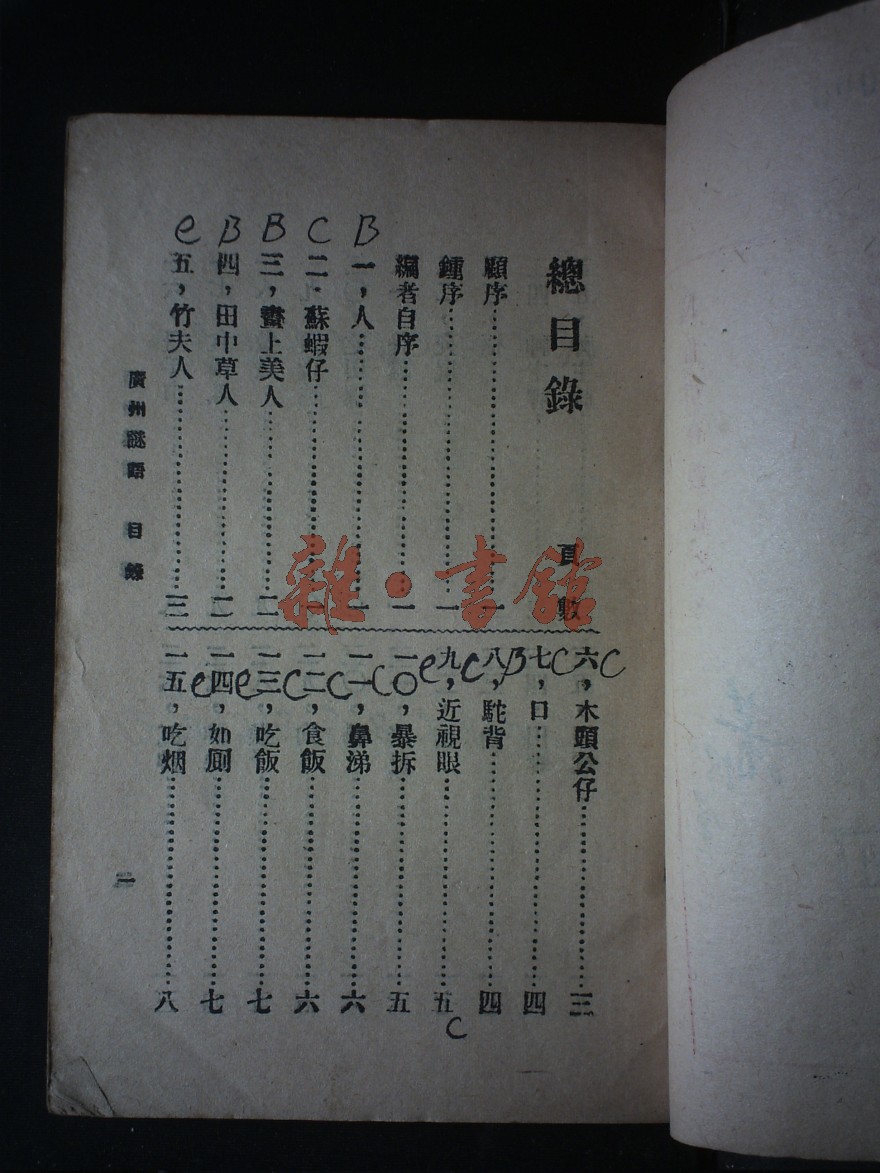 總目錄 頁數
顧序 一
鍾序 一
編者自序 一
B 一，人 一
C 二．蘇蝦仔 一
B 三，畫上美人 二
B 四，田中草人 二
e 五，竹夫人 三
六，木頭公仔 三 C
七，口 四 C
八，駝背 四 B
九，近視眼 五 C
一〇，暴拆 五 e
一一，鼻涕 六 C
一二，食飯 六 C
一三，吃飯 七 C
一四，如厠 七 e
一五，吃烟 八 e
C
廣州謎語 目錄
一
雜·書館